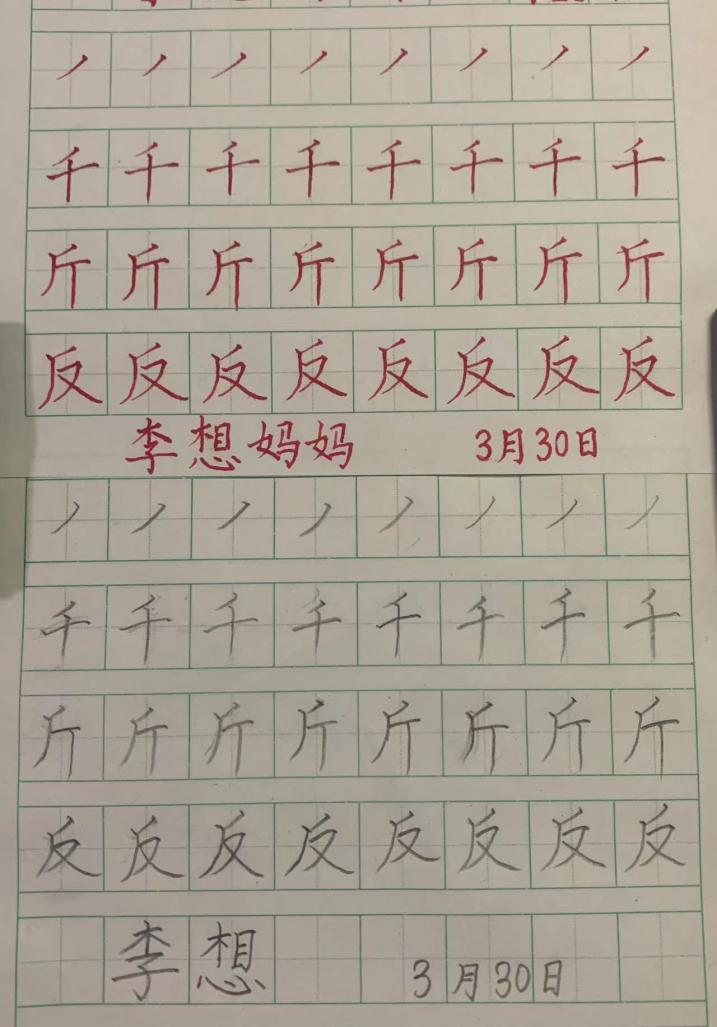 丿 丿 丿 丿 丿 丿 丿 丿
千 千 千 千 千 千 千 千
斤 斤 斤 斤 斤 斤 斤 斤
反 反 反 反 反 反 反 反
李想妈妈 3月30日
丿 丿 丿 丿 丿 丿 丿 丿
千 千 千 千 千 千 千 千
斤 斤 斤 斤 斤 斤 斤 斤
反 反 反 反 反 反 反 反
李想 3月30日